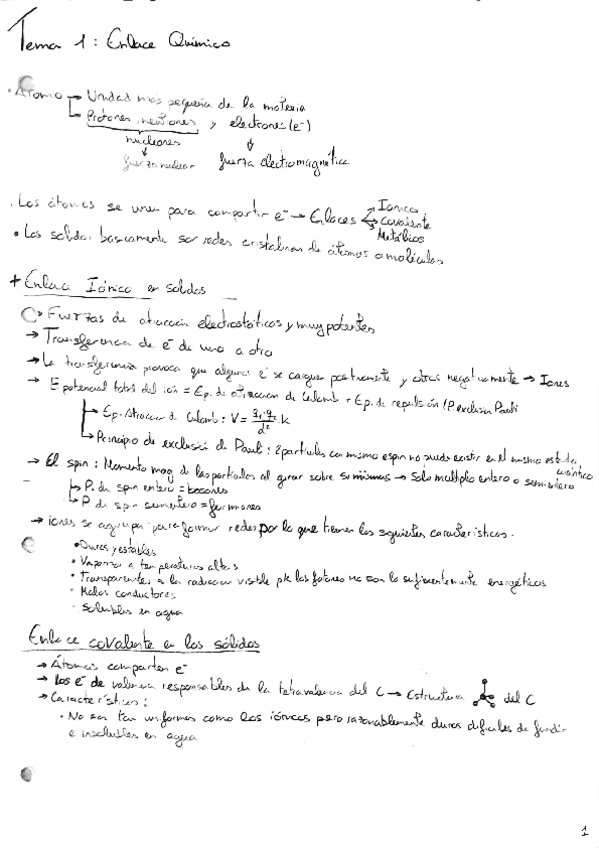 Tema 1: Enlace Químico
· Átomo → Unidad más pequeña de la materia
→ Protones, neutrones y electrones (e-)
nucleones
fuerza nuclear fuerza electromagnética
· Los átomos se unen para compartir e- → Enlaces → Iónico
Covalente
Metálicos
• Los solidos basicamente son redes cristalinas de átomos o moléculas
+ Enlace Iónico en solidos
→ Fuerzas de atracción electrostáticas y muy potentes
→ Transferencia de e- de uno a otro
→ La transferencia provoca que algunos e- se carguen positivamente y otros negativamente → Iones
→ E potencial total del ión = Ep. de atraccion de Culomb + Ep. de repulsión / P. exclusión Pauli
→ Ep. Atraccion de Culomb: V = q1·q2/d² · K
→ Principio de exclusió de Pauli: 2 particulas con mismo espin no puede existir en el mismo estado cuántico
→ El spin: Momento mag de las particulas al girar sobre si mismas → Solo multiplo entero o semientero
→ P. de spin entero = bosones
→ P. de spin semientero = fermiones
→ iones se agrupan para formar redes por lo que tienen las siguientes características.
• Duros y estables
• Vaporizan a temperaturas altas
• Transparentes a la radiacion visible pk los fotones no son lo suficientemente energéticos
• Malos conductores
• Solubles en agua
Enlace covalente en los sólidos
→ Átomos comparten e-
→ los e- de valencia responsables de la tetravalencia del C → Estructura del C
→ Características:
• No son tan uniformes como los iónicos pero razonablemente duros dificiles de fundir
e insolubles en agua
1